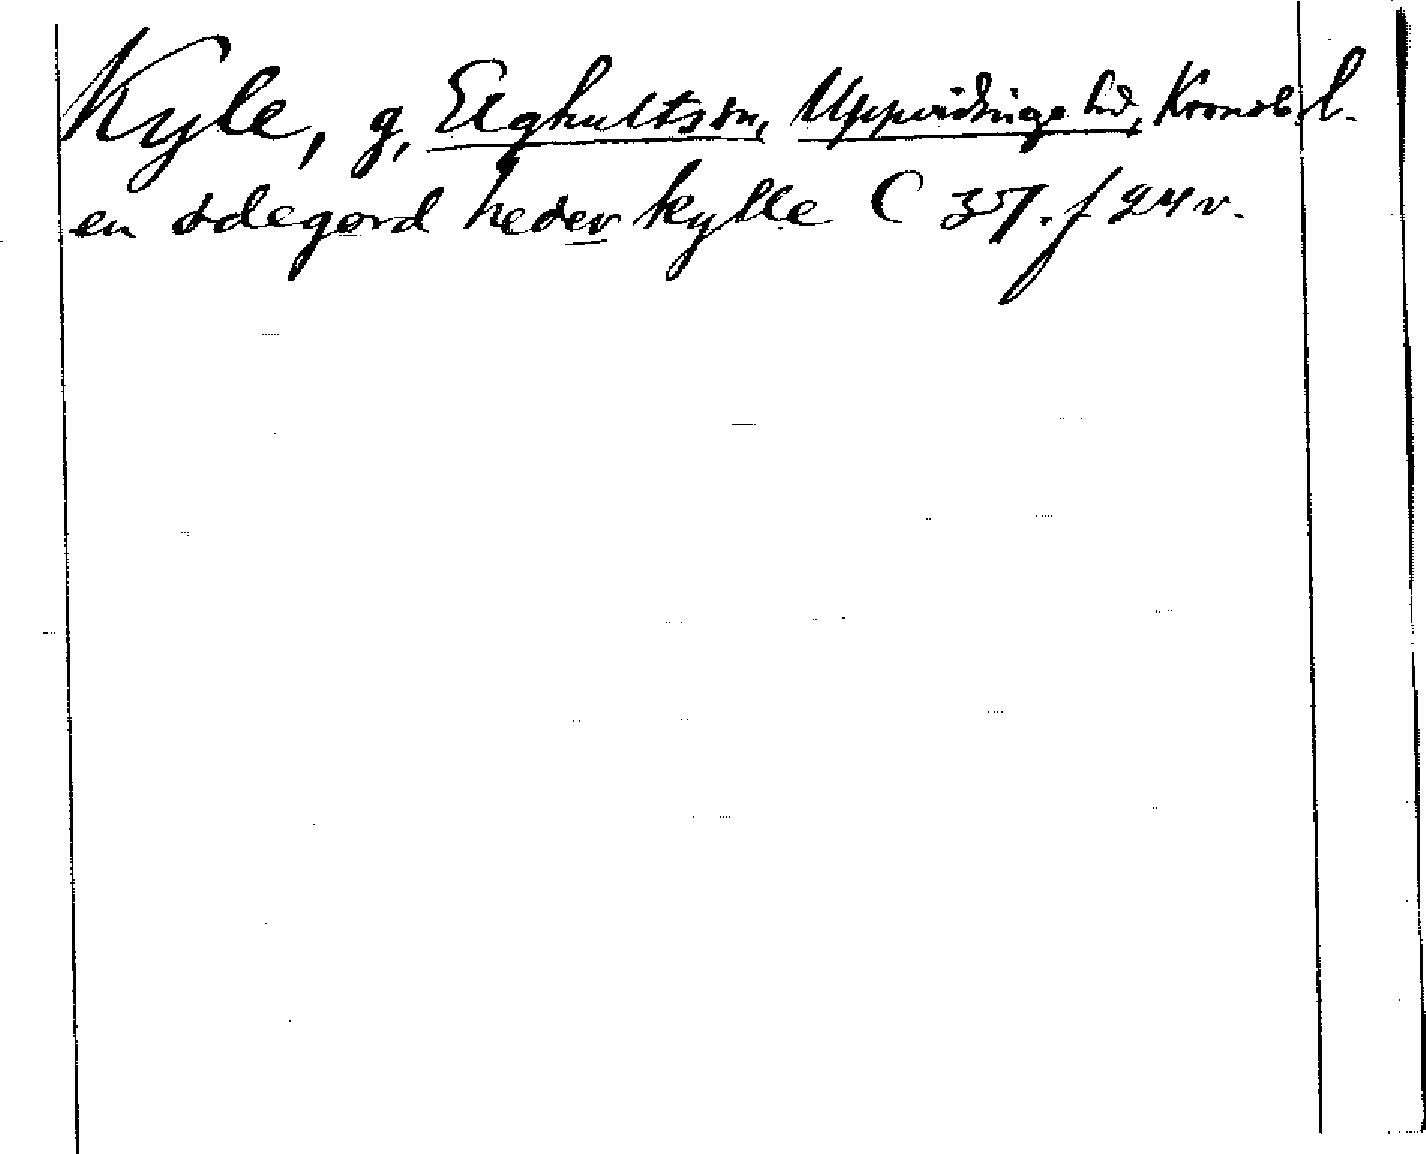 Kyle, g, Elghults sn, Uppvidinge hd, Kronob. l.
en ödegord heder kylle C 37. f 24 v.